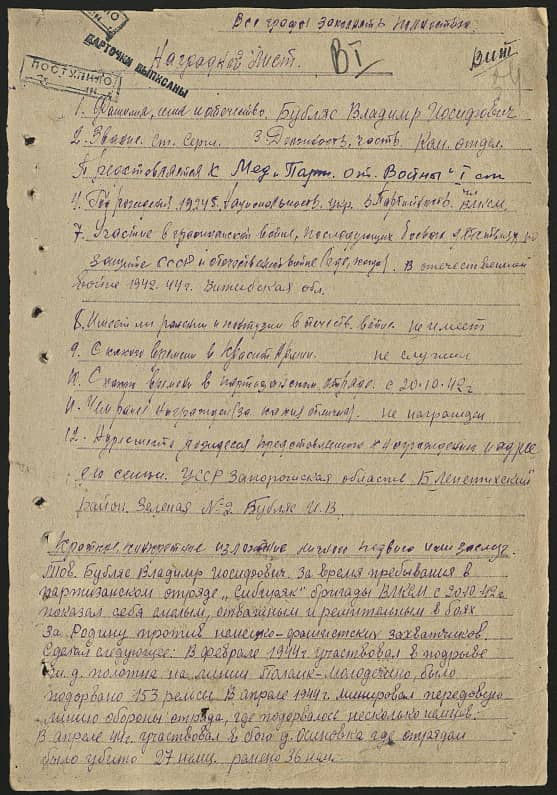 Все графы заполнять полностью.
ПОСТУПИЛО
КАРТОЧКИ ВЫПИСАНЫ
Наградной Лист.
ВІ
Вит
1. Фамилия, имя и отчество. Бубляс Владимир Иосифович
2. Звание. ст. серж. 3. Должность, часть. Ком. отдел.
Представляется к Мед. „Парт. от. Войны" I ст
4. Год рождения 1924г. Национальность. укр. Партийность. ВЛКСМ
7. Участие в гражданской войне, последующих боевых действиях по
защите СССР и отечественной войне (где, когда). В отечественной
войне 1942-44г. Витебская обл.
8. Имеет ли ранения и контузии в отечеств. войне. не имеет
9. С какого времени в Красной Армии. не служил
10. С какого времени в партизанском отряде. с 20.10.42г
11. Чем ранее награжден (за какие отличия). не награжден
12. представленного к награждению и адрес
его семьи. УССР Запорожская область Б. Лепетихский"
район. Зеленая №2 Бубляс И.В.
Краткое, конкретное изложение личного подвига или заслуг.
Тов. Бубляс Владимир Иосифович. За время пребывания в
партизанском отряде „Сибиряк" бригады ВЛКСМ с 20.10.42г
показал себя смелым, отважным и решительным в боях
за Родину против немецко-фашистских захватчиков.
Сделал следующее: В феврале 1944г участвовал в подрыве
ж.д. полотна на линии Полоцк-Молодечно, было
подорвано 153 рельсы. В апреле 1944г. минировал передовую
линию обороны отряда, где подорвалось несколько немцев.
В апреле 44г. участвовал в бою д. Осиновка где отрядом
было убито 27 немц. ранено 36 нем.